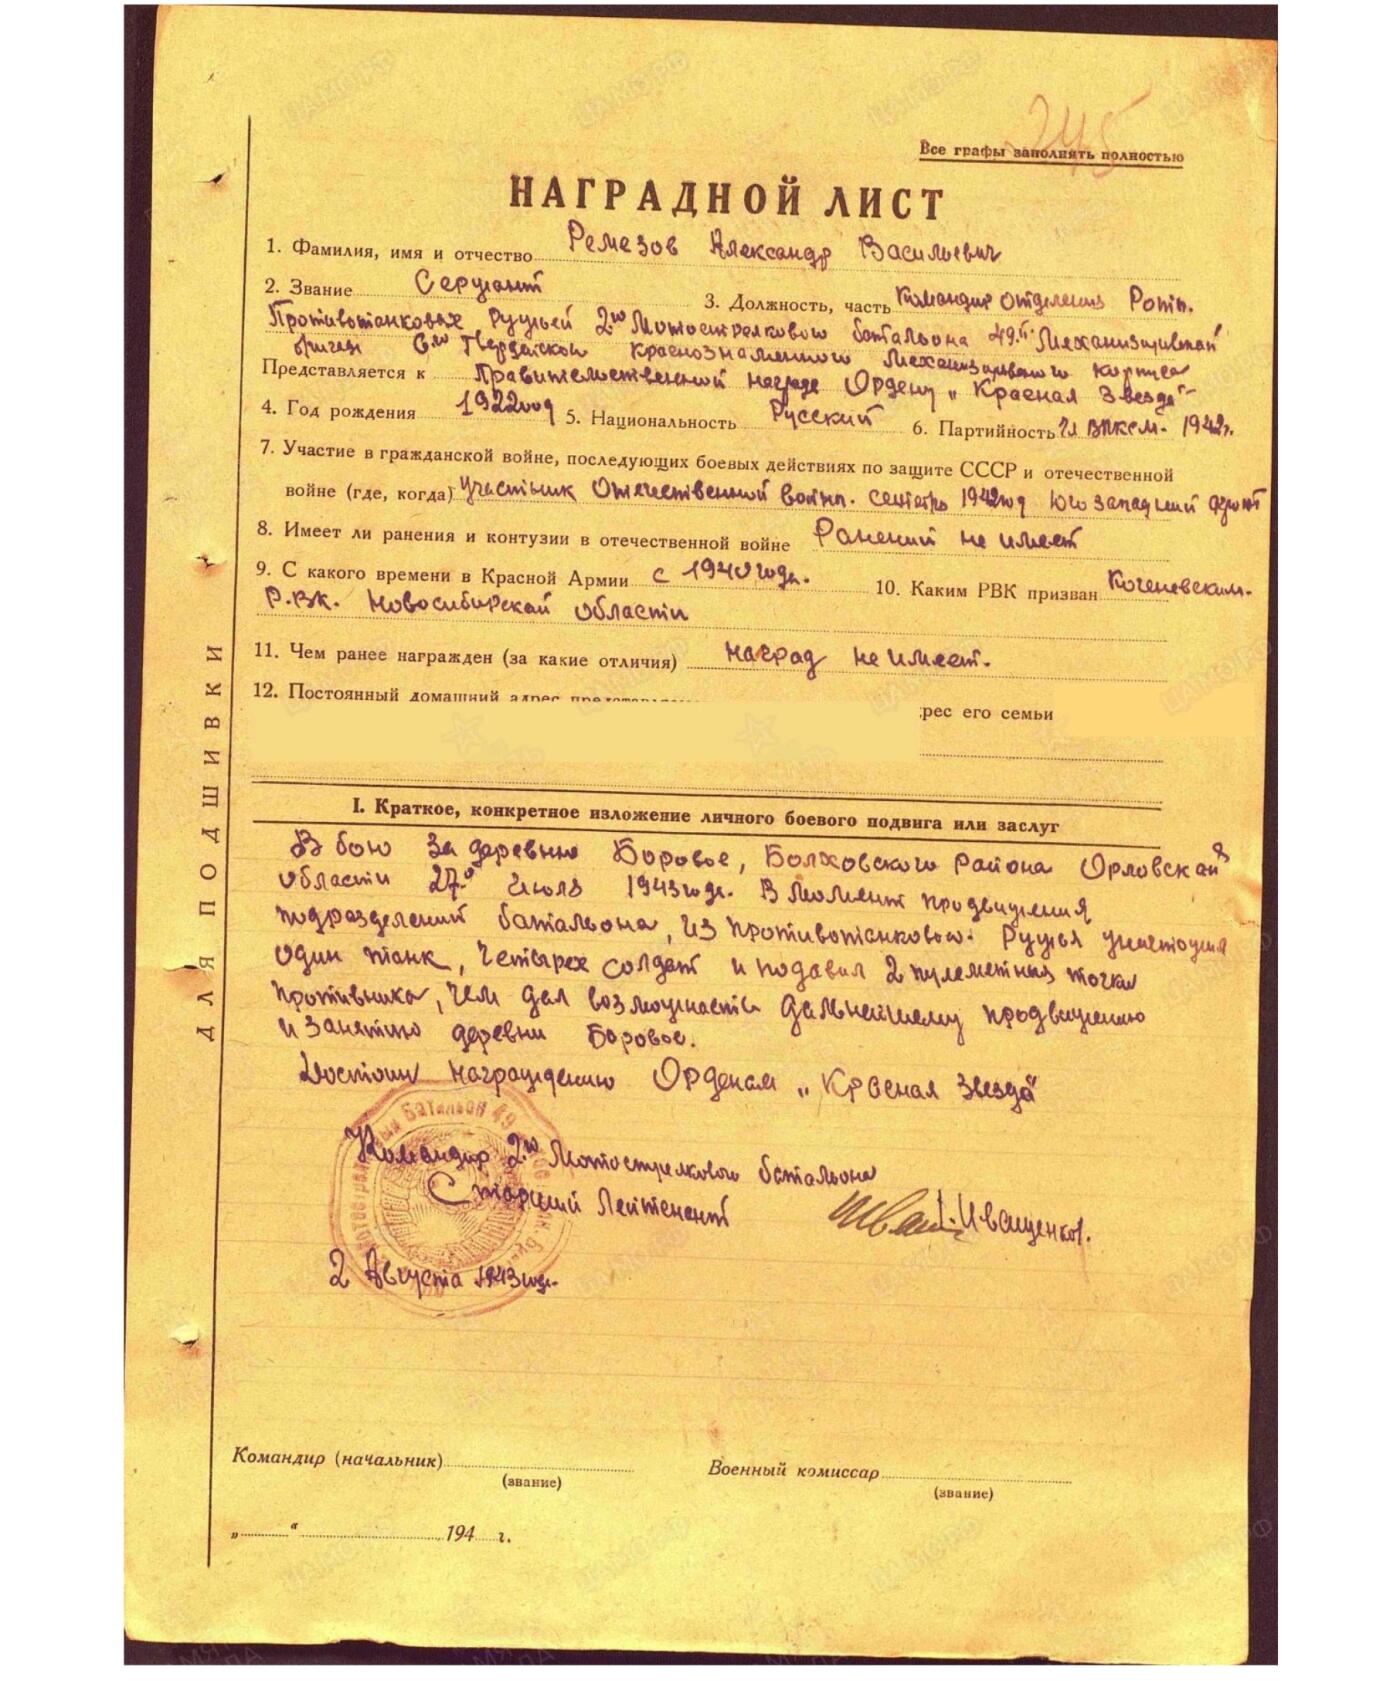 245
Все графы заполнять полностью
НАГРАДНОЙ ЛИСТ
1. Фамилия, имя и отчество Ремезов Александр Васильевич
2. Звание Сержант 3. Должность, часть Командир отделения Роты.
Противотанковых Ружьей 2го Мотострелкового батальона 49й Механизированной
бригады 6го Гвардейского Краснознаменного Механизированого корпуса
Представляется к Правительственной награде Ордену „Красная Звезда"
4. Год рождения 1922 год 5. Национальность Русский 6. Партийность Чл ВЛКСМ. 1942г.
7. Участие в гражданской войне, последующих боевых действиях по защите СССР и отечественной
войне (где, когда) Участник Отечественной войны. сентябрь 1942 год Юго западный фронт
8. Имеет ли ранения и контузии в отечественной войне Ранений не имеет
9. С какого времени в Красной Армии с 1940 года. 10. Каким РВК призван Коченевским.
Р.ВК. Новосибирской области
11. Чем ранее награжден (за какие отличия) наград не имеет.
12. Постоянный домашний адрес
рес его семьи
ДЛЯ ПОДШИВКИ
I. Краткое, конкретное изложение личного боевого подвига или заслуг
В бою за деревню Боровое, Болховского района Орловской
области 27го июля 1943 года. В момент продвижения
подразделений батальона, из противотанкового. Ружья уничтожил
один танк, четырех солдат и подавил 2 пулеметных точки
противника, чем дал возможность дальнейшему продвижению
и занятию деревни Боровое.
Достоин награждению Орденам „Красная Звезда"
Командир 2го Мотострелкового батальона
Старший Лейтенант Иващенко.
2 Августа 1943 года.
Командир (начальник)
(звание)
Военный комиссар
(звание)
„ “ 194 г.